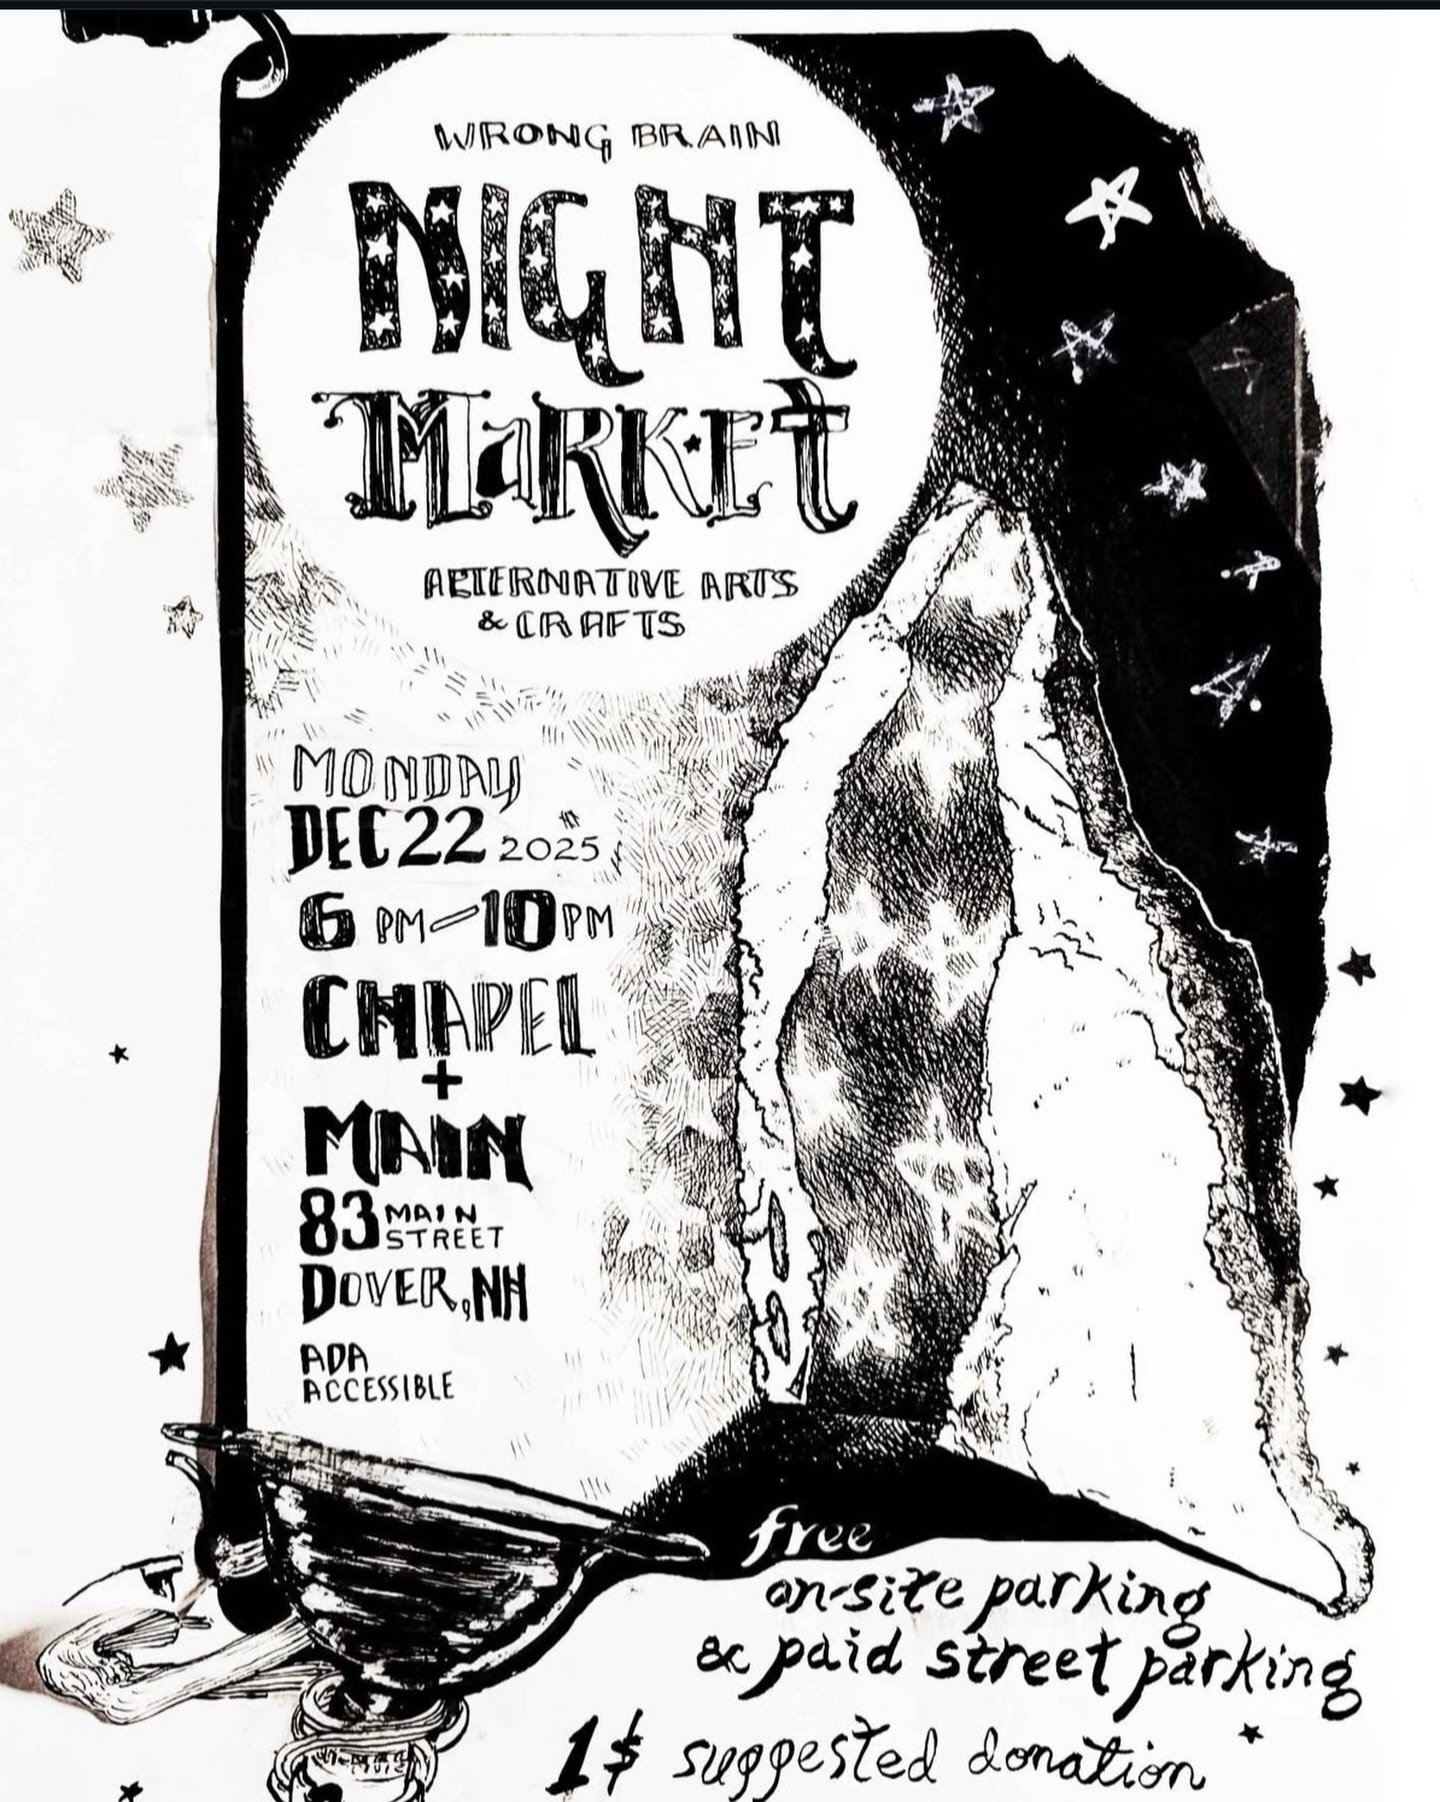 WRONG BRAIN
NIGHT
MARKET
ALTERNATIVE ARTS
& CRAFTS
MONDAY
DEC 22 2025
6 PM-10PM
CHAPEL
+
MAIN
83 MAIN
STREET
DOVER, NH
ADA
ACCESSIBLE
free
on-site parking
& paid street parking
1$ suggested donation